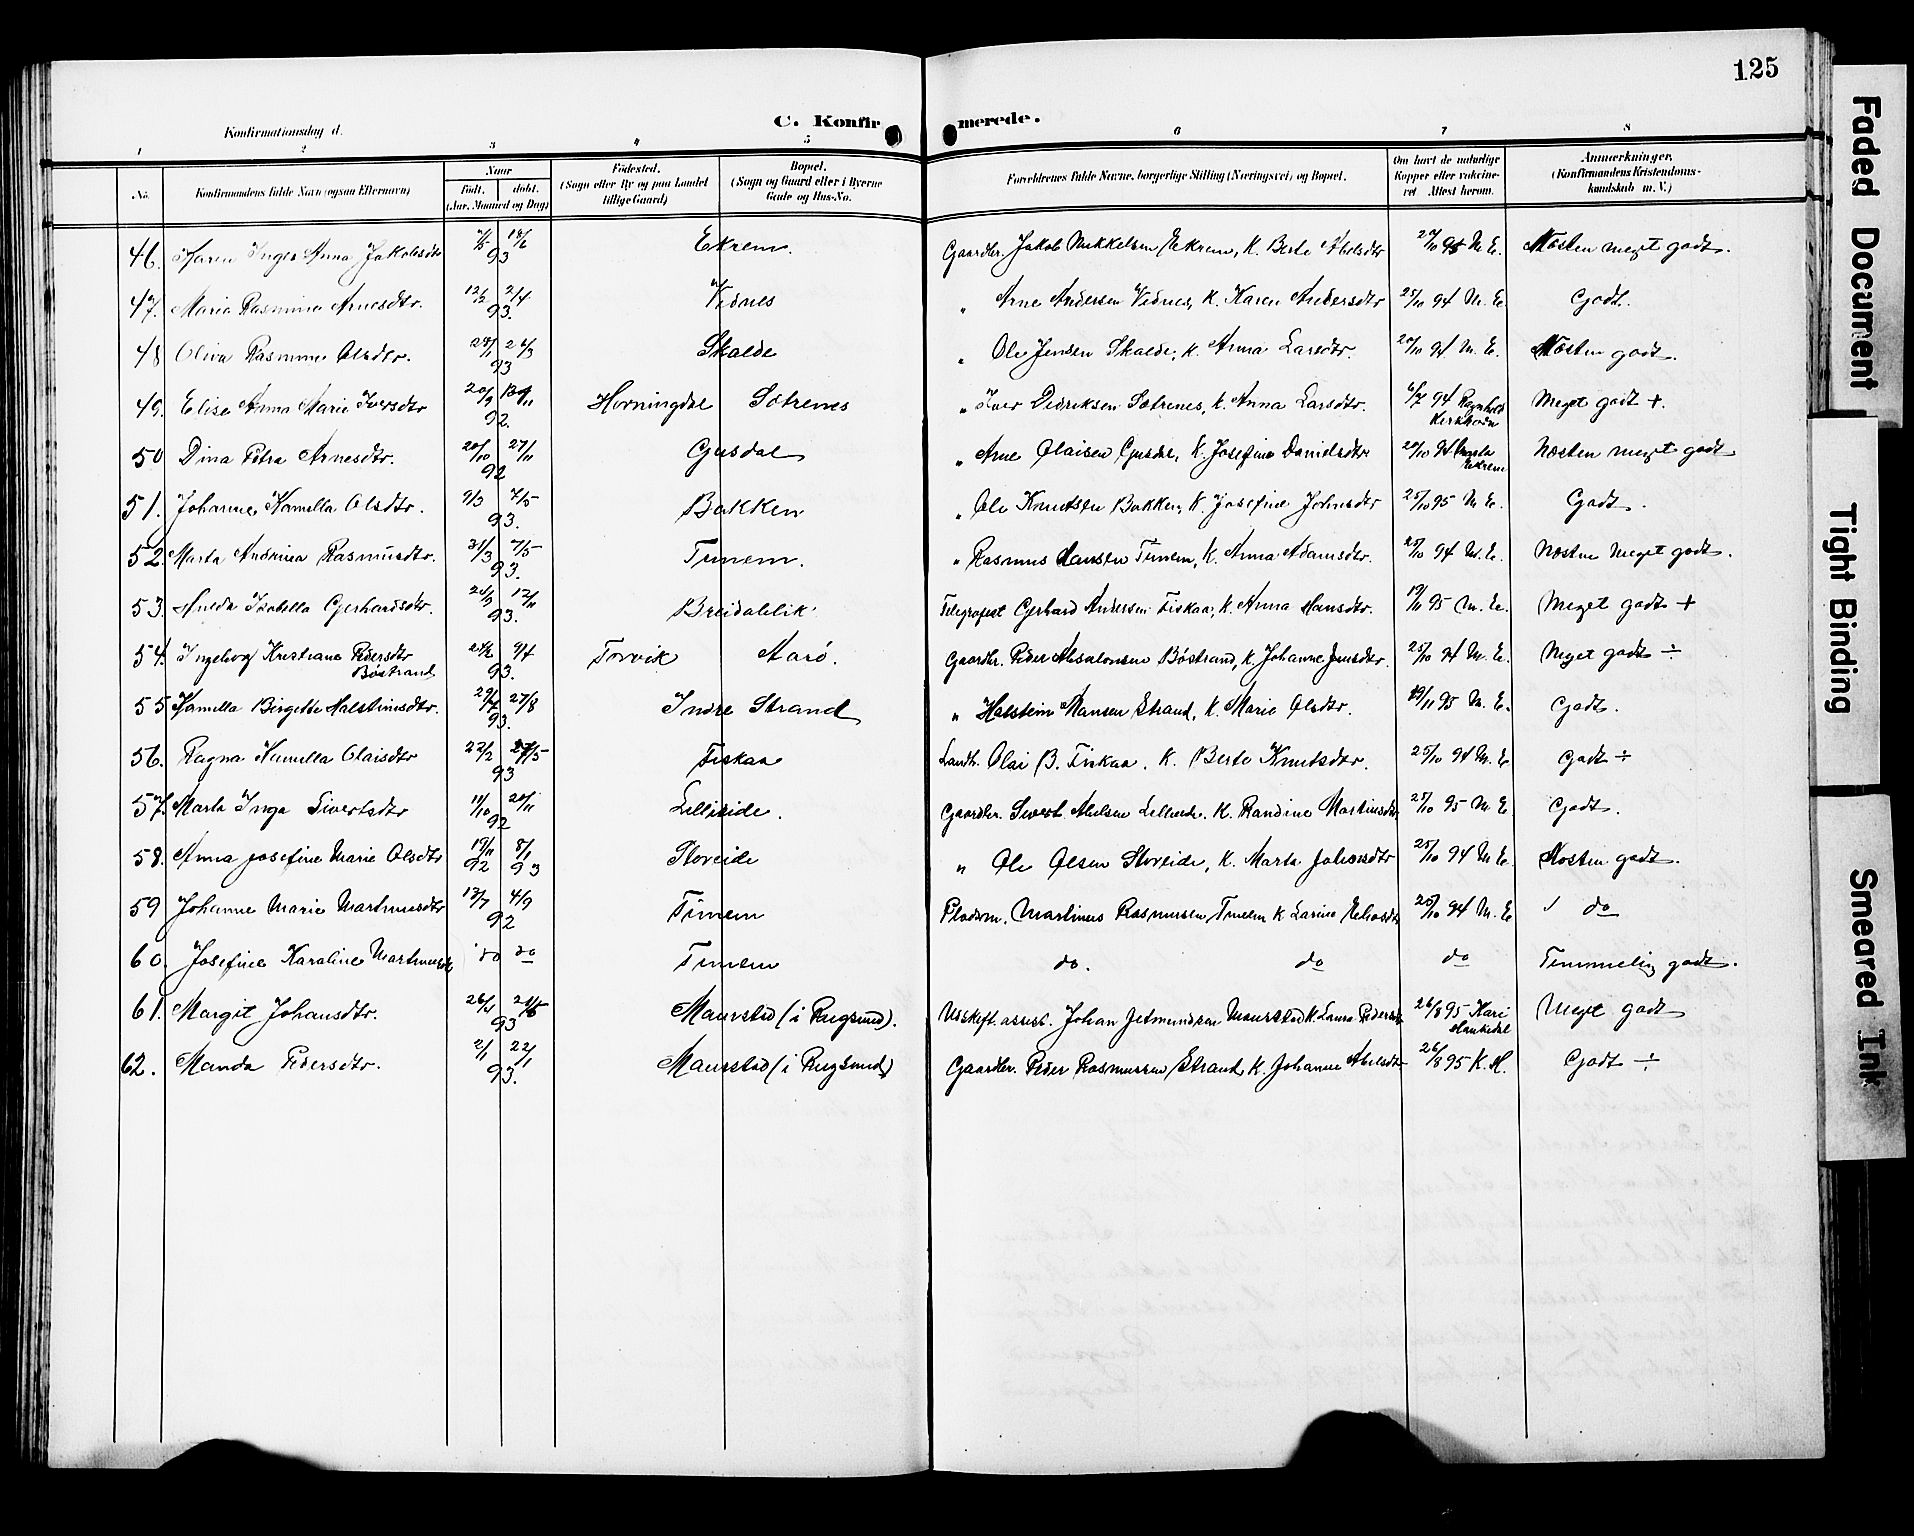 125
C. Konfirmerede.
Konfirmationsdag d.
1 2 3 4 5 6 7 8
No. Konfirmandens fulde Navn (ogsaa Efternavn) Naar født. døbt. (Aar, Maaned og Dag) Fødested. (Sogn eller By og paa Landet tillige Gaard) Bopæl. (Sogn og Gaard eller i Byerne Gade og Hus-No. Forældrenes fulde Navne, borgerlige Stilling (Næringsvei) og Bopæl. Om havt de naturlige Kopper eller vaccineret Attest herom. Anmærkninger. (Konfirmandens Kristendomskundskab m. V.)
46. Karen Inger Anna Jakobsdtr 18/6 93 Ekrem. Gaardbr. Jakob Mikkelsen Ekrem, K. Berte Abelsdtr M. E. Næsten meget godt.
47. Marie Rasmine Arnesdtr. 12/2 2/4 93. Vidnes " Arne Andersen Vidnes, K. Karen Andersdtr 25/10 94 M. E. Godt.
48 Oliva Rasmine Olsdtr. 28/1 26/3 93 Skalde " Ole Jensen Skalde, K. Anna Larsdtr. 25/10 94 M. E. Næsten godt.
49. Elise Anna Marie Iversdtr 20/9 92. Horningdal Sætrenes " Iver Didriksen Sætrenes, K. Anna Larsdtr. 6/7 94 Ragnhild Kirkhorn Meget godt +.
50 Dina Petra Arnesdtr. 20/10 27/11 92 Gusdal " Arne Olaisen Gusdal, K. Josefine Danielsdtr 94 Ekrem Næsten meget godt
51. Johanne Kamilla Olsdtr. 9/3 7/5 93. Bakken " Ole Knutsen Bakken, K. Josefine Johnsdtr 25/10 95 M. E. Godt.
52. Marta Andrina Rasmusdtr. 31/3 7/5 93. Tunem. " Rasmus Hansen Tunem, K. Anna Adamsdtr 25/10 94 M. E. Næsten meget godt.
53. Hulda Isabella Gerhardsdtr. 12/11 93. Breidablik Telegrafest Gerhard Andersen Fiskaa, K. Anna Hansdtr. 19/11 95 M. E. Meget godt +
54. Ingeborg Kristiane Pedersdtr 9/4 93. Torvik Aarö. Gaardbr. Peder Absalonsen Böstrand, K. Johanne Jensdtr. 25/10 94 M. E. Meget godt ÷
Böstrand
55 Kamilla Birgitte Halstensdtr. 29/7 27/8 93. Indre Strand " Halstein Hansen Strand, K. Marie Olsdtr. 19/11 95 M. E. Godt.
56. Ragna Kamilla Olaisdtr 22/2 93 Fiskaa Landh. Olai B. Fiskaa, K. Berte Knutsdtr. 25/10 94 M. E. Godt ÷
57. Marta Inga Sivertsdtr 11/10 20/11 92 Lilleeide. Gaardbr. Sivert Abelsen Lilleeide, K. Randine Martinusdtr 25/10 95 M. E Godt.
58. Anna Josefine Marie Olsdtr 19/11 92 8/1 93 Storeide " Ole Olsen Storeide, K. Marta Johansdtr 25/10 94 M. E. Næsten godt.
59 Johanne Marie Martinusdtr 13/7 4/9 92 Tunem Pladsm. Martinus Rasmussen, Tunem K. Larine Eliasdtr 25/10 94 M. E do
60. Josefine Karoline Martinusdtr do do Tunem do. do do Temmelig godt.
61. Margit Johansdtr. 26/1 93 Maurstad (i Rugsund). Udskift. assist. Johan Jetmundsen Maurstad K. Laura Pedersdtr 26/8 95 Kari Meget godt
62. Manda Pedersdtr. 2/1 22/1 93. Maurstad (i Rugsund) Gaardbr. Peder Rasmussen Strand, K. Johanne Abelsdtr 26/8 95 K. H. Godt ÷
Faded Document
Tight Binding
Smeared Ink